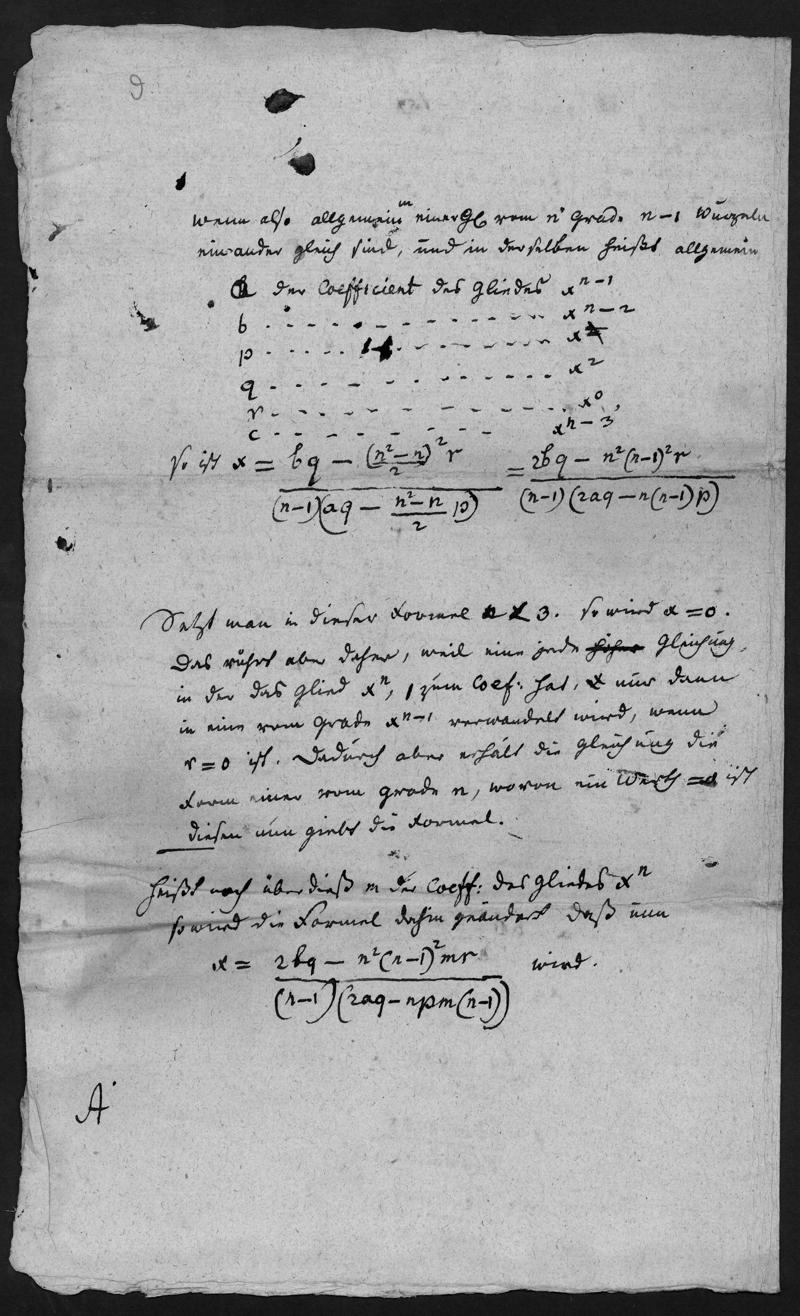 wenn also allgemein in einer Gl vom n Grade n-1 Wurzeln
einander gleich sind, und in derselben heißt allgemein
a der Coefficient des Gliedes x^{n-1}
b - - - - - - - - x^{n-2}
p - - - - - - - - x
q - - - - - - - - x^2
r - - - - - - - - x^0,
c - - - - - - - - x^{n-3}
so ist x = \frac{bq - (\frac{n^2-n}{2})^2 r}{(n-1)(aq - \frac{n^2-n}{2} p)} = \frac{2bq - n^2(n-1)^2 r}{(n-1)(2aq - n(n-1)p)}
Setzt man in dieser Formel n < 3. so wird x = 0.
Das rührt aber daher, weil eine jede höhere Gleichung,
in der das Glied x^n, 1 zum Coef: hat, nur dann
in eine vom Grade x^{n-1} verwandelt wird, wenn
r = 0 ist. Dadurch aber erhält die Gleichung die
Form einer vom Grade n, wovon ein Werth = 0 ist
diesen nun giebt die Formel.
Heißt noch überdieß m der Coeff: des Gliedes x^n
so wird die Formel dahin geändert daß nun
x = \frac{2bq - n^2(n-1)^2 mr}{(n-1)(2aq - npm(n-1))} wird.
A